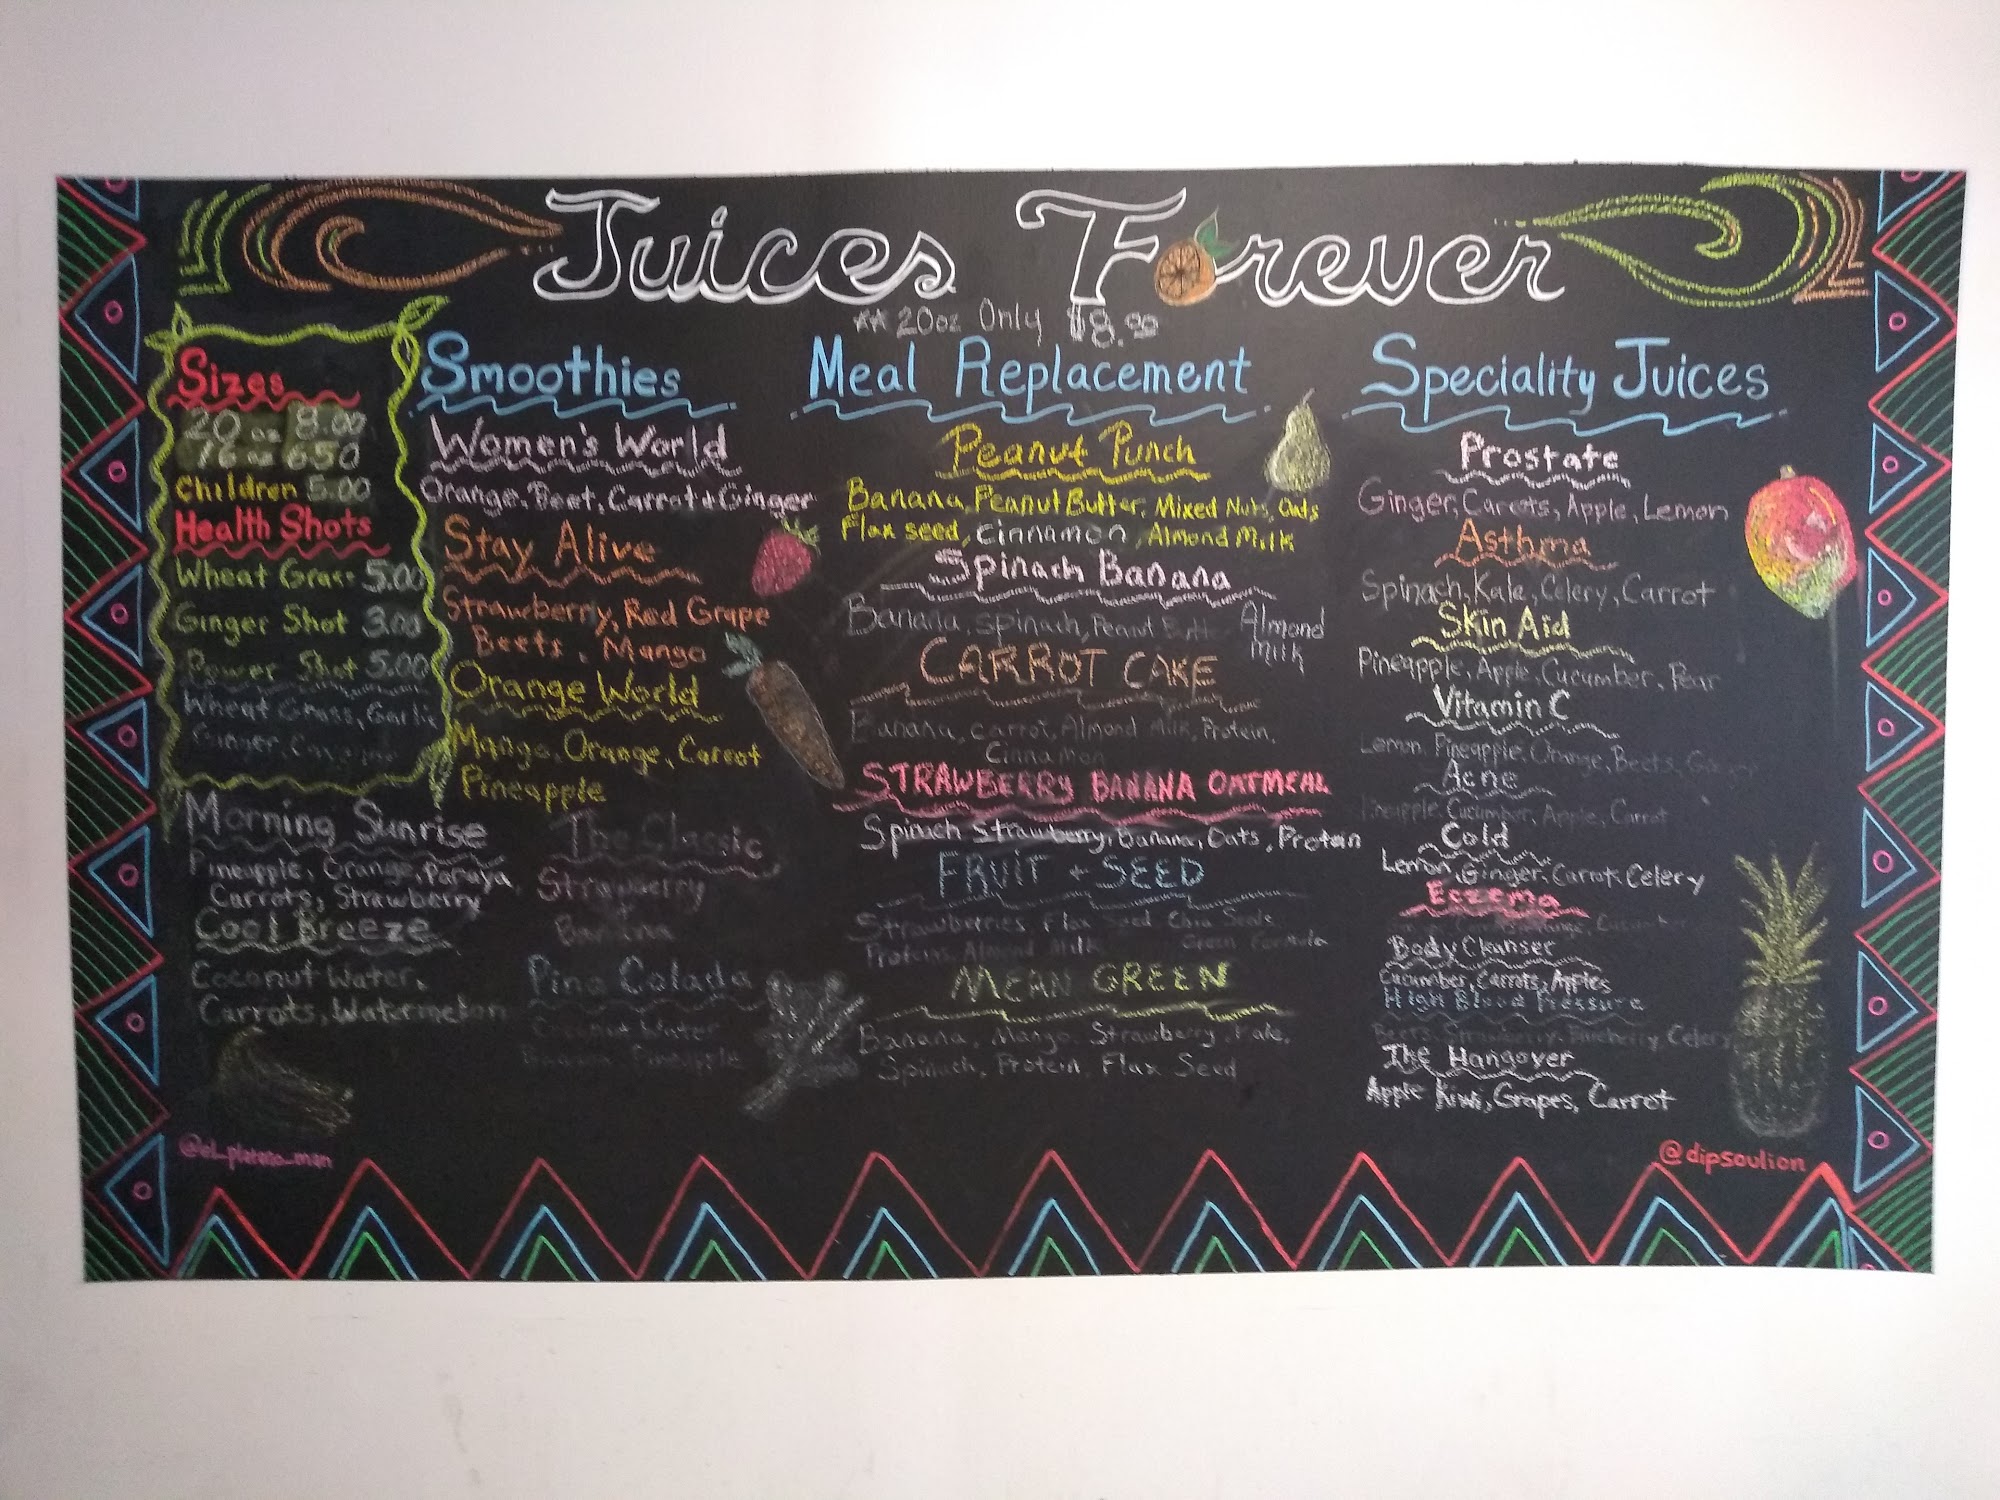 Juices Forever
** 20oz Only $8.00
Sizes
20 oz 8.00
16 oz 650
Children 5.00
Health Shots
Wheat Grass 5.00
Ginger Shot 3.00
Power Shot 5.00
Wheat Grass, Garlic
Ginger, Cayenne
Smoothies
Women's World
Orange, Beet, Carrot + Ginger
Stay Alive
Strawberry, Red Grape
Beets, Mango
Orange World
Mango, Orange, Carrot
Pineapple
Morning Sunrise
Pineapple, Orange, Papaya,
Carrots, Strawberry
Cool Breeze
Coconut Water,
Carrots, Watermelon
The Classic
Strawberry
Banana
Pina Colada
Coconut Water
Banana Pineapple
Meal Replacement
Peanut Punch
Banana, Peanut Butter, Mixed Nuts, Oats
Flax seed, Cinnamon, Almond Milk
Spinach Banana
Banana, Spinach, Peanut Almond
Milk
CARROT CAKE
Banana, carrot, Almond Milk, Protein,
Cinnamon
STRAWBERRY BANANA OATMEAL
Spinach Strawberry, Banana, Oats, Protein
FRUIT + SEED
Strawberries, Flax Seed Chia Seeds
Proteins, Almond Milk Green Formula
MEAN GREEN
Banana, Mango, Strawberry, Kale,
Spinach, Protein, Flax Seed
Speciality Juices
Prostate
Ginger, Carrots, Apple, Lemon
Asthma
Spinach, Kale, Celery, Carrot
Skin Aid
Pineapple, Apple, Cucumber, Pear
Vitamin C
Lemon, Pineapple, Orange, Beets,
Acne
Pineapple, Cucumber, Apple, Carrot
Cold
Lemon, Ginger, Carrot, Celery
Eczema
Body Cleanser
Cucumber, Carrots, Apples
High Blood Pressure
Beets, Strawberry, Blueberry, Celery
The Hangover
Apple Kiwi, Grapes, Carrot
@el_platano_man
@dipsoulion